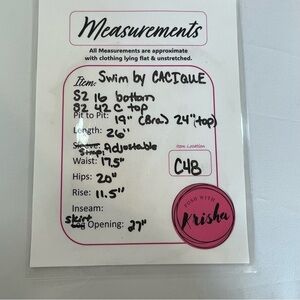 Measurements
All Measurements are approximate
with clothing lying flat & unstretched.
Item: Swim by CACIQUE
SZ 16 bottom
SZ 42 C top
Pit to Pit: 19" (Bra) 24" (top)
Length: 26"
Sleeve: Adjustable
Straps
Item Location
C4B
Waist: 17.5"
Hips: 20"
Rise: 11.5"
Inseam:
Skirt
Leg Opening: 27"
POSH WITH
Krisha